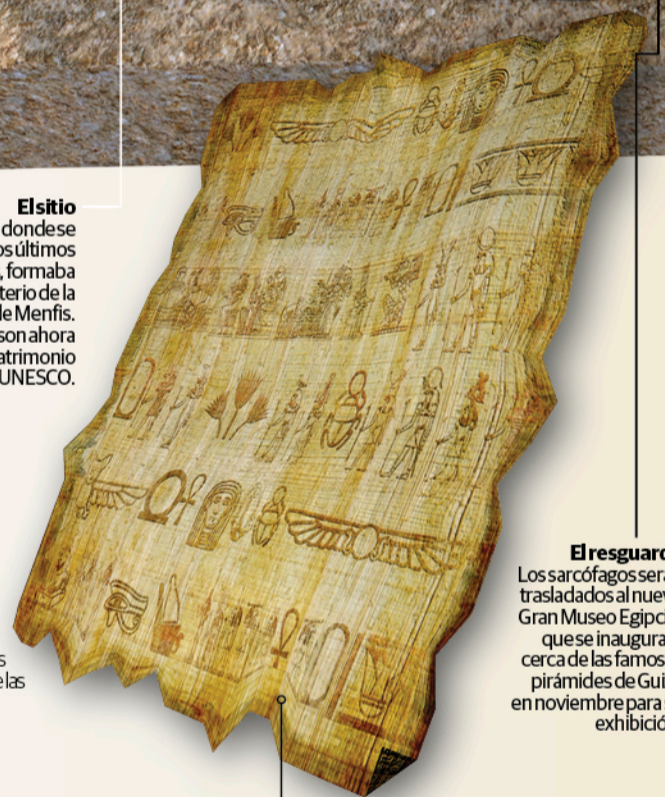 El sitio
donde se
os últimos
, formaba
terio de la
de Menfis.
son ahora
atrimonio
UNESCO.
s
e las
El resguard
Los sarcófagos será
trasladados al nuev
Gran Museo Egipci
que se inaugura
cerca de las famos
pirámides de Gui
en noviembre para s
exhibició